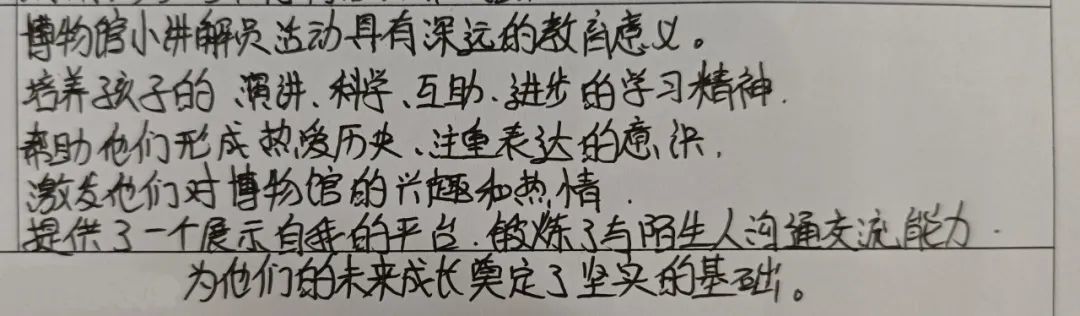 博物馆小讲解员活动具有深远的教育意义。
培养孩子的演讲、科学、互助、进步的学习精神.
帮助他们形成热爱历史、注重表达的意识.
激发他们对博物馆的兴趣和热情.
提供了一个展示自我的平台.锻炼了与陌生人沟通交流能力.
为他们的未来成长奠定了坚实的基础。